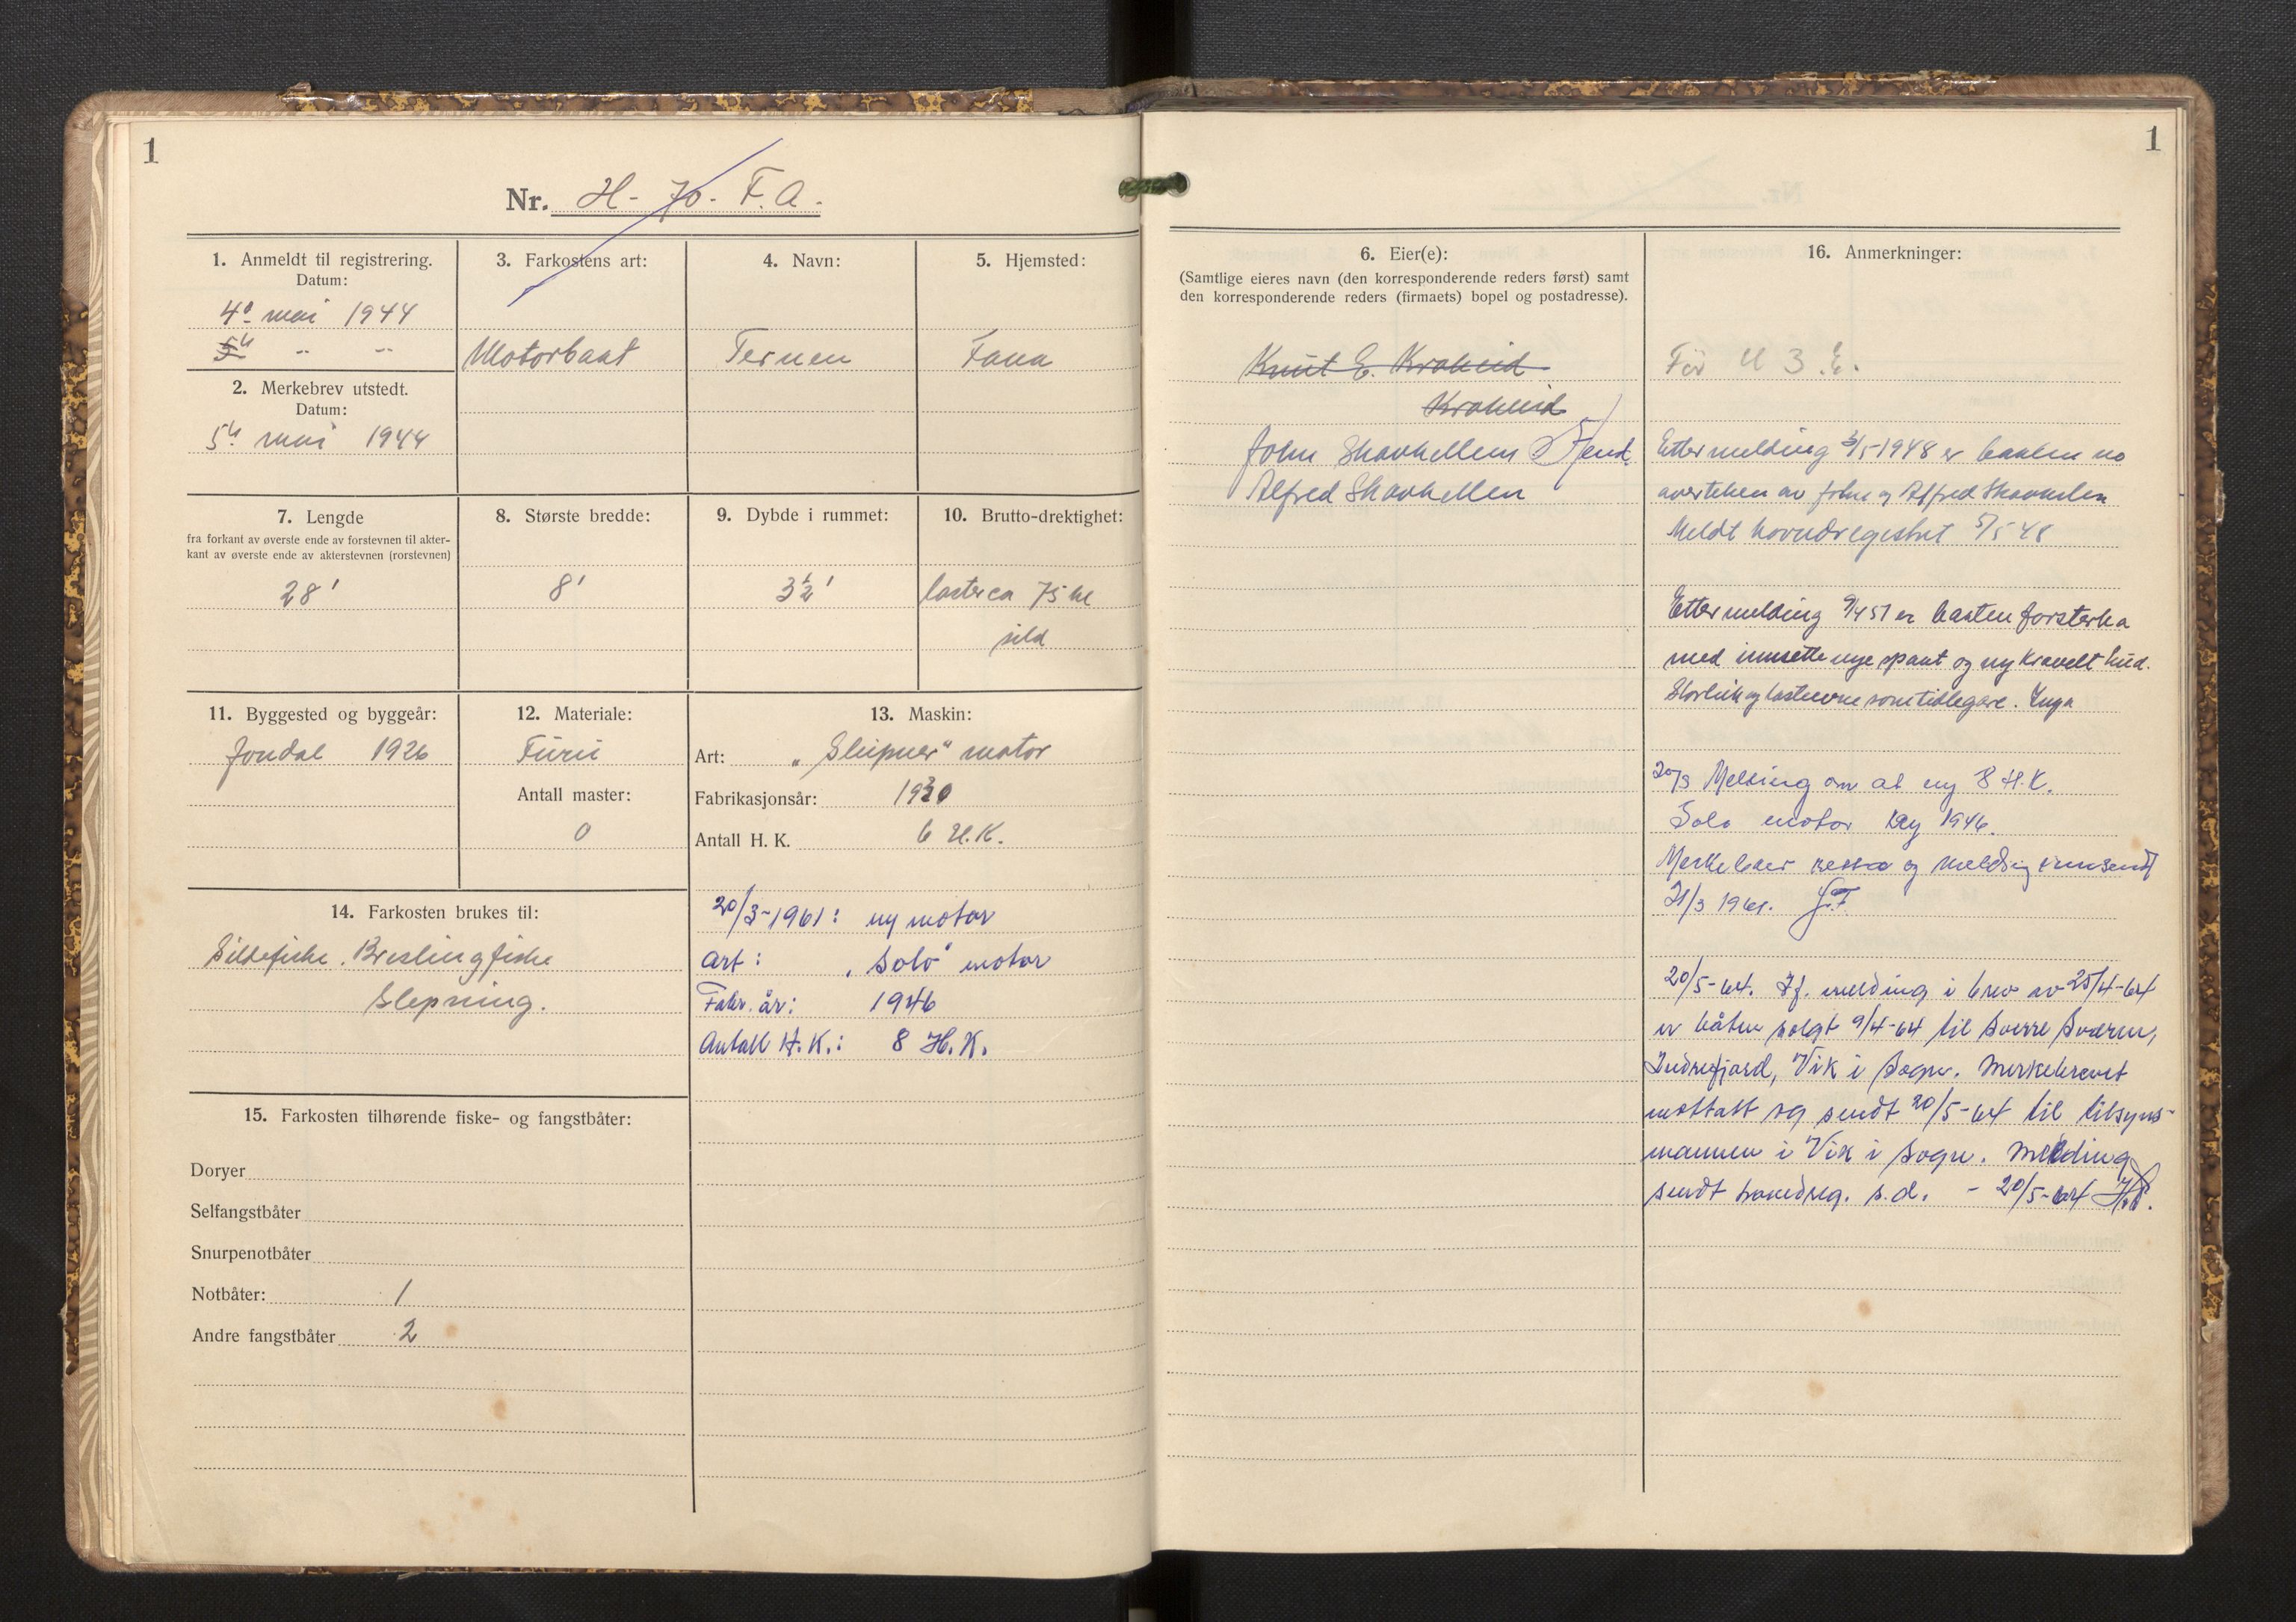 1
Nr. H-70-F.A.
1. Anmeldt til registrering.
Datum:
4. mai 1944
2. Merkebrev utstedt.
Datum:
5. mai 1944
3. Farkostens art:
Motorbaat
4. Navn:
Ternen
5. Hjemsted:
Fana
7. Lengde
fra forkant av øverste ende av forstevnen til akter-
kant av øverste ende av akterstevnen (rorstevnen)
28'
8. Største bredde:
8'
9. Dybde i rummet:
3½'
10. Brutto-drektighet:
laster ca 75 hl
sild
11. Byggested og byggeår:
Jondal 1926
12. Materiale:
Furu
Antall master:
0
13. Maskin:
Art: „Sleipner" motor
Fabrikasjonsår: 1930
Antall H. K. 6 H.K.
20/3-1961: ny motor
Art: „Solo" motor
Fabr. år: 1946
Antall H.K.: 8 H.K.
14. Farkosten brukes til:
Sildefiske. Brislingfiske
Slepning.
15. Farkosten tilhørende fiske- og fangstbåter:
Doryer
Selfangstbåter
Snurpenotbåter
Notbåter: 1
Andre fangstbåter 2
1
6. Eier(e):
(Samtlige eieres navn (den korresponderende reders først) samt
den korresponderende reders (firmaets) bopel og postadresse).
Knut E. Krokeid
Krokeid
John Skavhellen
Alfred Skavhellen
16. Anmerkninger:
Før
Etter melding 3/5-1948 er baaten no
overteken av John og Alfred Skavhellen
Meldt hovudregistret 5/5 48
Etter melding 9/4 51 er baaten forsterka
med innsette nye spant og ny kravelt hud.
Storleik og lasteevne som tidlegare.
20/3 Melding om at ny 8 H.K.
Solo motor 1946.
Merkebrev og melding innsendt
21/3 1961. J.F.
20/5-64. Jf. melding i brev av 25/4-64
er båten solgt 9/4-64 til Sverre Sværen,
Indrefjord, Vik i Sogn. Merkebrevet
mottatt og sendt 20/5-64 til tilsyns-
mannen i Vik i Sogn. Melding
sendt hovedreg. s.d. - 20/5-64